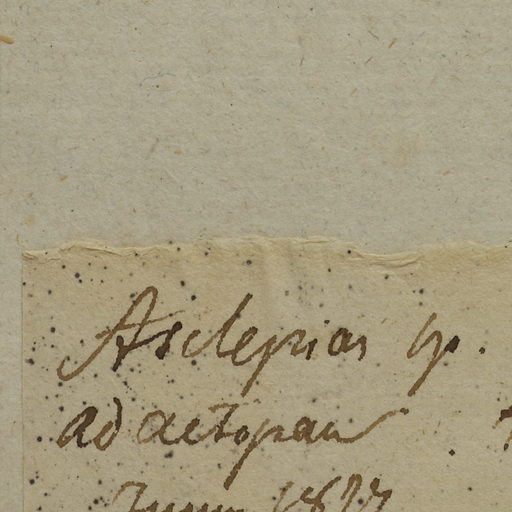 Asclepias sp.
ad actopan
Junio 1827